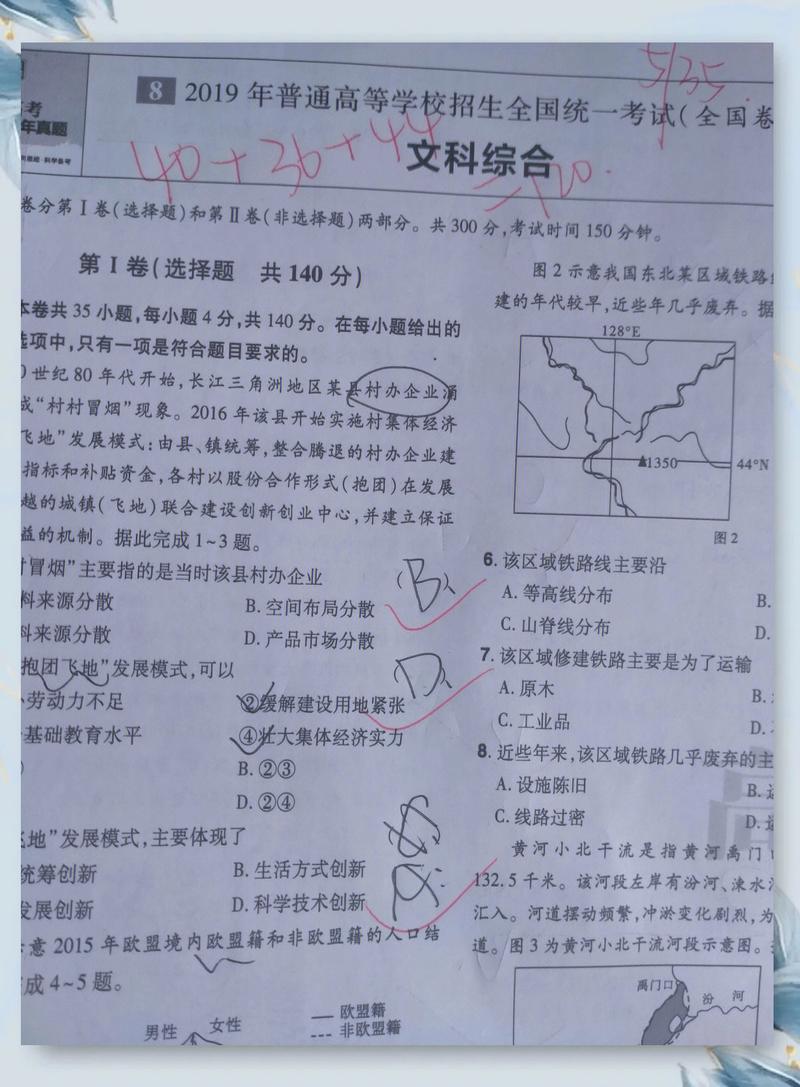 5/35
8 2019年普通高等学校招生全国统一考试(全国卷
考
年真题
40+36+44
=120.
文科综合
卷分第Ⅰ卷(选择题)和第Ⅱ卷(非选择题)两部分。共300分,考试时间150分钟。
第Ⅰ卷(选择题 共140分)
本卷共35小题,每小题4分,共140分。在每小题给出的
选项中,只有一项是符合题目要求的。
0世纪80年代开始,长江三角洲地区某县村办企业涌
成“村村冒烟”现象。2016年该县开始实施村集体经济
飞地”发展模式:由县、镇统筹,整合腾退的村办企业建
指标和补贴资金,各村以股份合作形式(抱团)在发展
越的城镇(飞地)联合建设创新创业中心,并建立保证
益的机制。据此完成1~3题。
冒烟”主要指的是当时该县村办企业
(B)
料来源分散
B.空间布局分散
料来源分散
D.产品市场分散
抱团飞地”发展模式,可以
(D)
劳动力不足
②缓解建设用地紧张
基础教育水平
④壮大集体经济实力
)
B.②③
D.②④
飞地”发展模式,主要体现了
统筹创新
B.生活方式创新
发展创新
D.科学技术创新
示意2015年欧盟境内欧盟籍和非欧盟籍的人口结
完成4~5题。
男性 女性
欧盟籍
非欧盟籍
图2示意我国东北某区域铁路
建的年代较早,近些年几乎废弃。据
128°E
▲1350
44°N
图2
6.该区域铁路线主要沿
A.等高线分布
B.
C.山脊线分布
D.
7.该区域修建铁路主要是为了运输
A.原木
B.
C.工业品
D.
8.近些年来,该区域铁路几乎废弃的主
A.设施陈旧
B.运
C.线路过密
D.运
黄河小北干流是指黄河禹门口
132.5千米。该河段左岸有汾河、涑水
汇入。河道摆动频繁,冲淤变化剧烈,为
道。图3为黄河小北干流河段示意图。
禹门口
汾 河